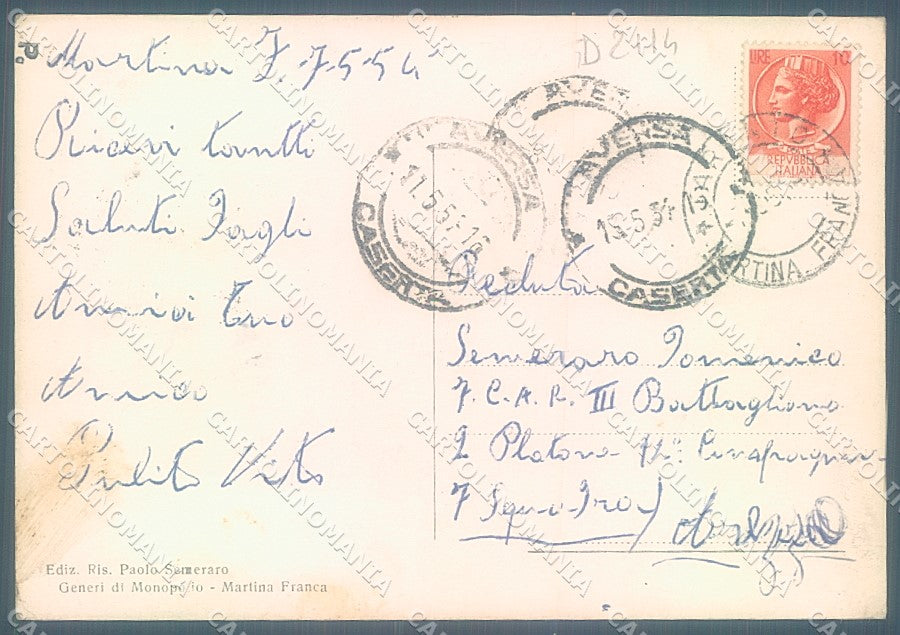 Martina F. 7-5-54
Ricevi tantti
Saluti Dagli
Amici Tuo
Amico
Pulito Vito
Ediz. Ris. Paolo Semeraro
Generi di Monopolio - Martina Franca
D2414
LIRE 10
REPVBBLICA
ITALIANA
AVERSA
AVERSA
11.5.54.16
CASERTA
AVERSA
15.5.54
CASERTA
MARTINA FRANCA
Recluta
Semeraro Domenico
7 C.A.R. III Battaglione
2 Plotone 12ª Compagnia
7 Squadra
CARTOLINOMANIA